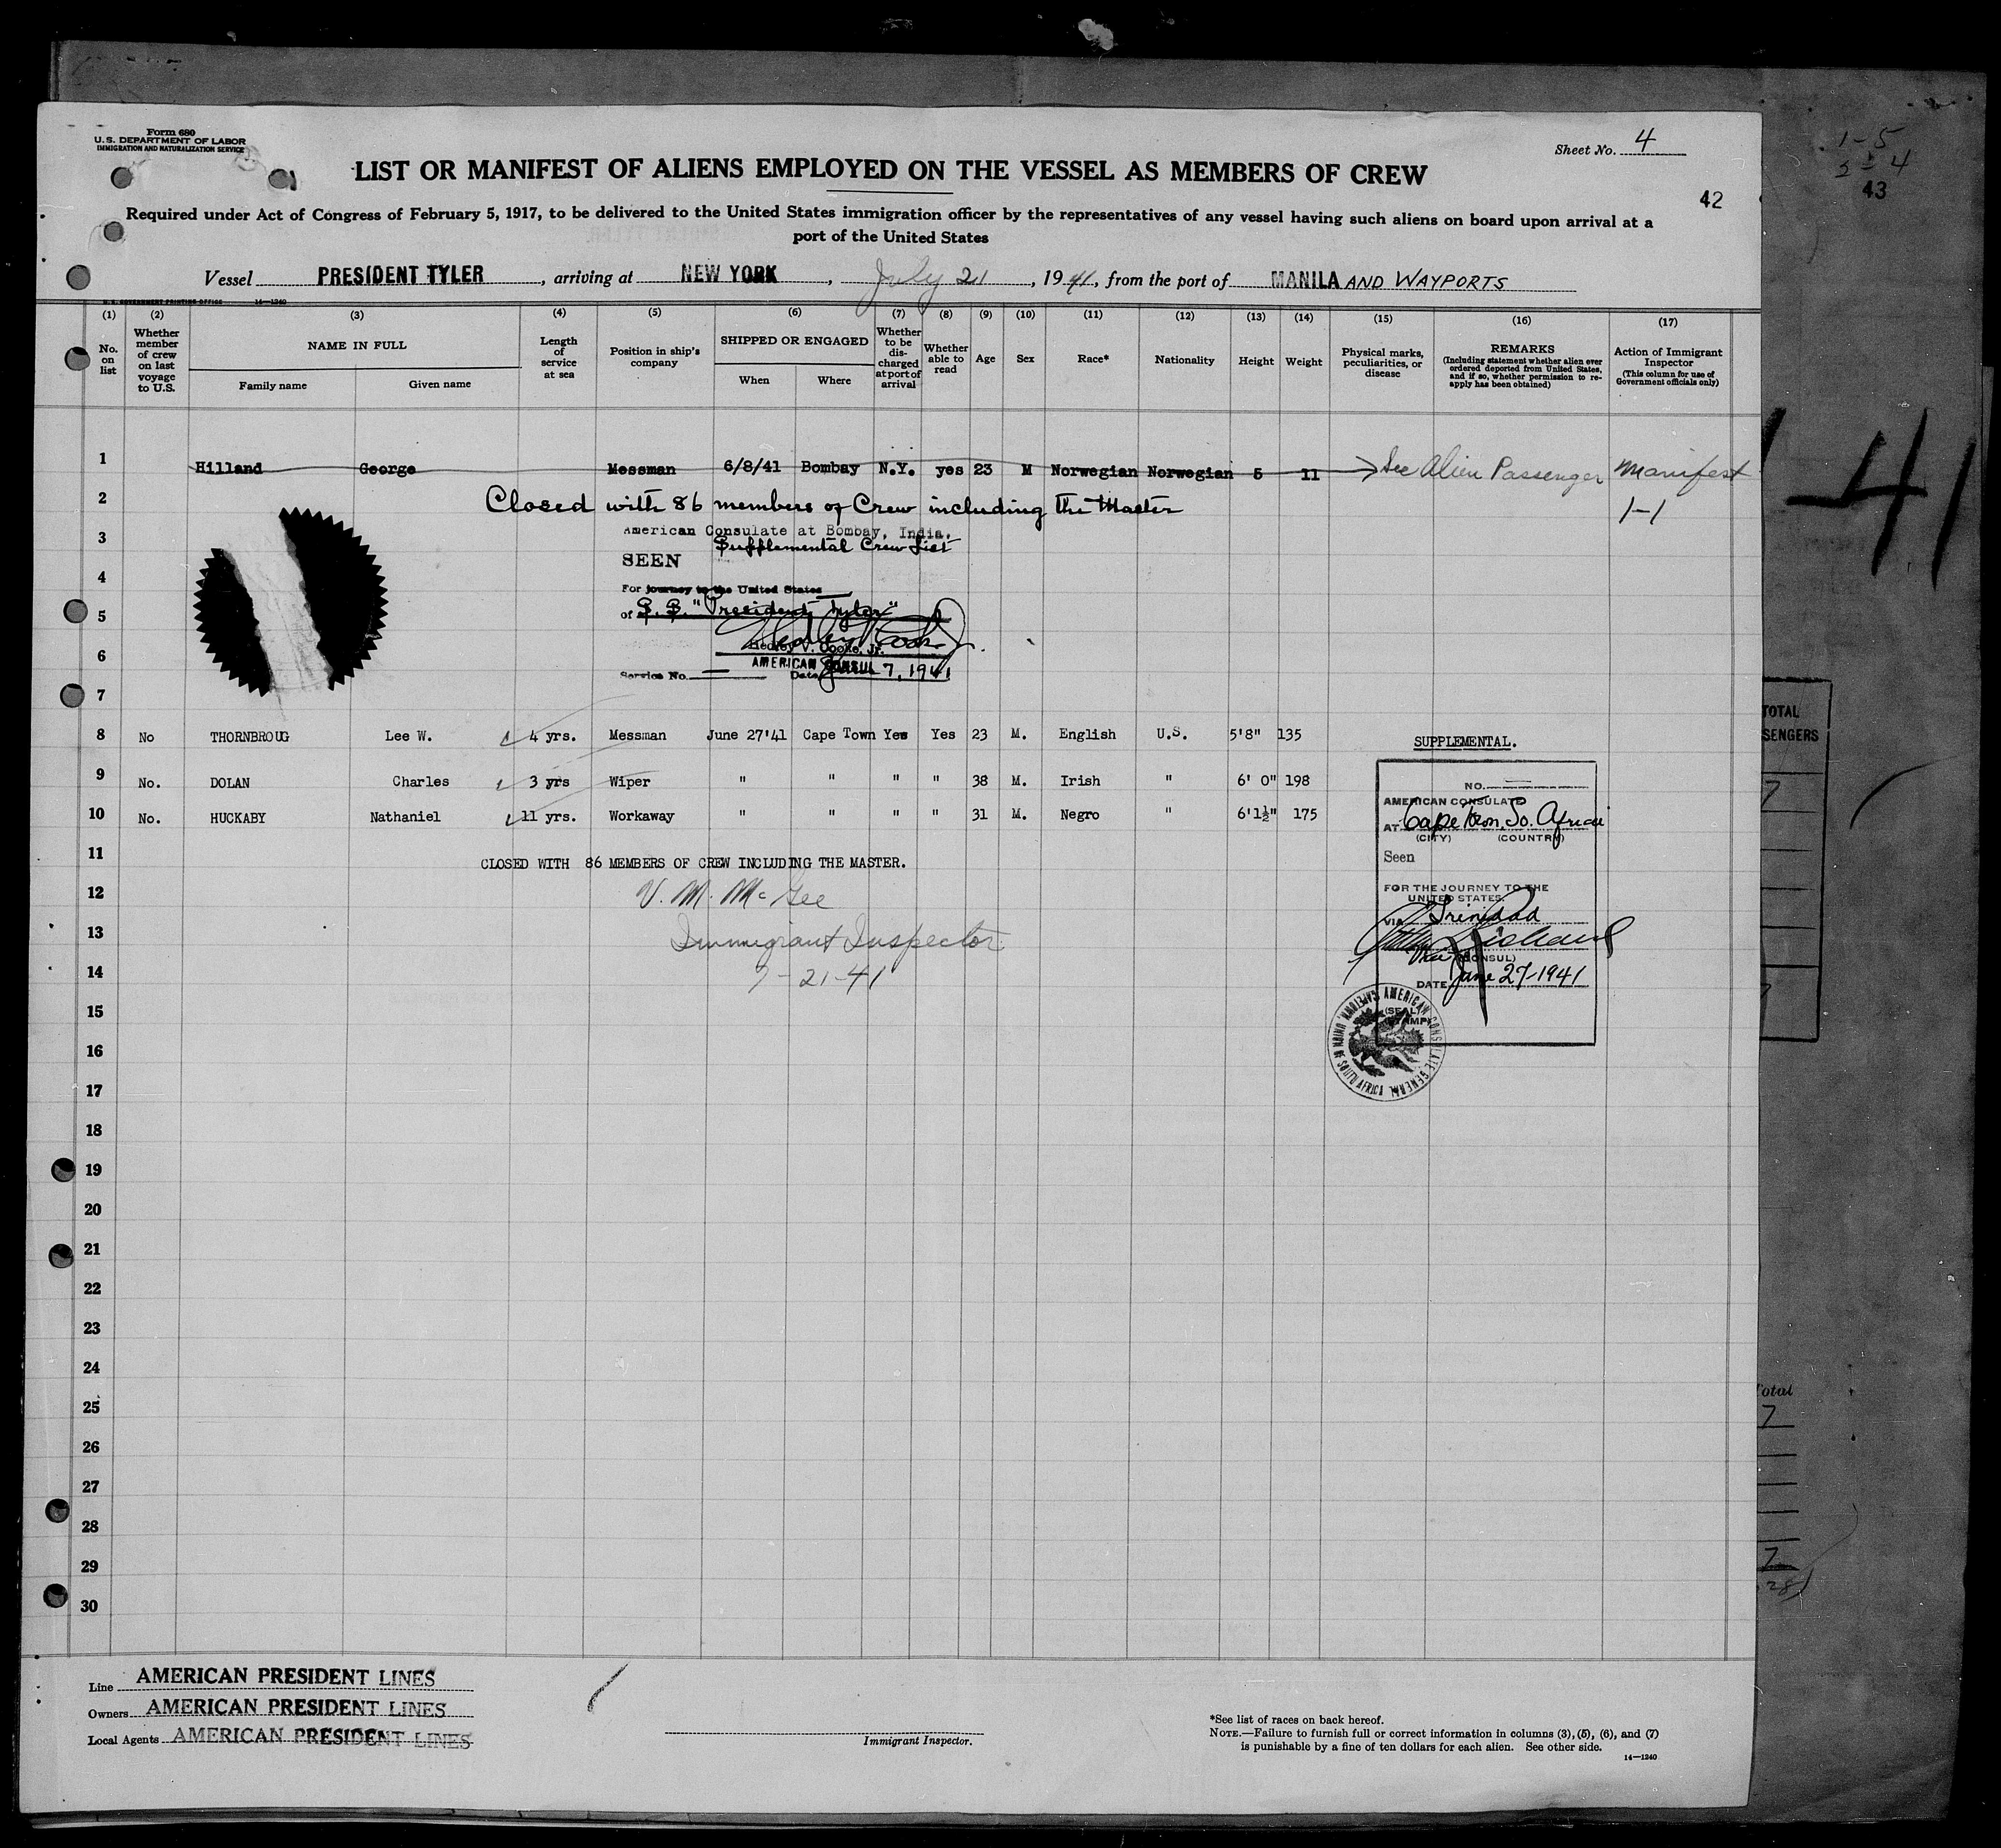 Form 680
U.S. DEPARTMENT OF LABOR
IMMIGRATION AND NATURALIZATION SERVICE
Sheet No. 4
LIST OR MANIFEST OF ALIENS EMPLOYED ON THE VESSEL AS MEMBERS OF CREW
42
Required under Act of Congress of February 5, 1917, to be delivered to the United States immigration officer by the representatives of any vessel having such aliens on board upon arrival at a
port of the United States
Vessel PRESIDENT TYLER, arriving at NEW YORK, July 21, 1941, from the port of MANILA AND WAYPORTS
U. S. GOVERNMENT PRINTING OFFICE 14—1240
(1) (2) (3) (4) (5) (6) (7) (8) (9) (10) (11) (12) (13) (14) (15) (16) (17)
No. on list
Whether member of crew on last voyage to U.S.
NAME IN FULL
Family name
Given name
Length of service at sea
Position in ship's company
SHIPPED OR ENGAGED
When
Where
Whether to be discharged at port of arrival
Whether able to read
Age
Sex
Race*
Nationality
Height
Weight
Physical marks, peculiarities, or disease
REMARKS
(Including statement whether alien ever ordered deported from United States, and if so, whether permission to reapply has been obtained)
Action of Immigrant Inspector
(This column for use of Government officials only)
1 Hilland George Messman 6/8/41 Bombay N.Y. yes 23 M Norwegian Norwegian 5 11 See Alien Passenger Manifest
2 Closed with 86 members of Crew including the Master 1-1
3 American Consulate at Bombay, India.
Supplemental Crew List
SEEN
4
For journey to the United States
5 of S.S. "President Tyler"
Hedley V. Cooke, Jr.
6 AMERICAN CONSUL
Service No. — Date June 7, 1941
7
8 No THORNBROUG Lee W. 4 yrs. Messman June 27'41 Cape Town Yes Yes 23 M. English U.S. 5'8" 135 SUPPLEMENTAL.
9 No. DOLAN Charles 3 yrs Wiper " " " " 38 M. Irish " 6' 0" 198
10 No. HUCKABY Nathaniel 11 yrs. Workaway " " " " 31 M. Negro " 6'1½" 175
11 CLOSED WITH 86 MEMBERS OF CREW INCLUDING THE MASTER.
12 V. M. McGee
13 Immigrant Inspector
14 7-21-41
15
16
17
18
19
20
21
22
23
24
25
26
27
28
29
30
NO. —
AMERICAN CONSULATE
AT Cape Town, So. Africa
(CITY) (COUNTRY)
Seen
FOR THE JOURNEY TO THE
UNITED STATES.
VIA Trinidad
Vice (CONSUL)
DATE June 27-1941
(SEAL)
(STAMP)
AMERICAN CONSULATE GENERAL CAPETOWN, UNION OF SOUTH AFRICA
Line AMERICAN PRESIDENT LINES
Owners AMERICAN PRESIDENT LINES
Local Agents AMERICAN PRESIDENT LINES
Immigrant Inspector.
*See list of races on back hereof.
NOTE.—Failure to furnish full or correct information in columns (3), (5), (6), and (7)
is punishable by a fine of ten dollars for each alien. See other side.
14—1240
1-5
2-4
43
41
TOTAL
7
7
7